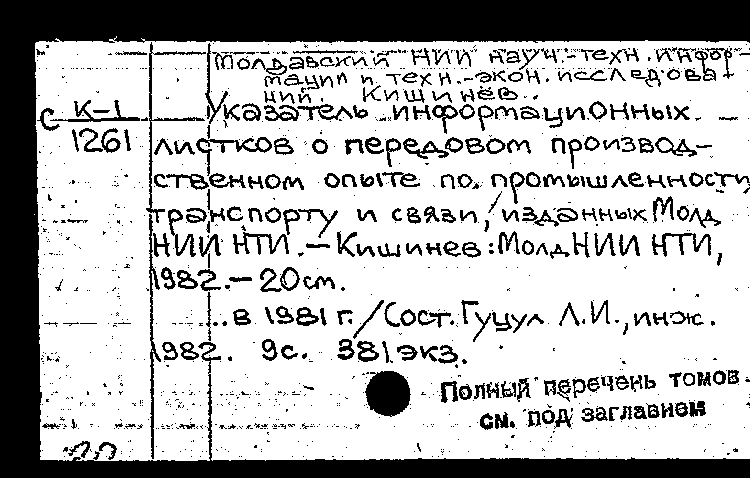 Молдавский НИИ науч.-техн. инфор-
мации и техн.-экон. исследова-
ний. Кишинев.
С К-1
1261
Указатель информационных
листков о передовом производ-
ственном опыте по промышленности,
транспорту и связи, изданных Молд
НИИ НТИ. — Кишинев: МолдНИИ НТИ,
1982. — 20 см.
...в 1981 г. / Сост. Гуцул Л.И., инж.
1982. 9с. 381 экз.
Полный перечень томов
см. под заглавием